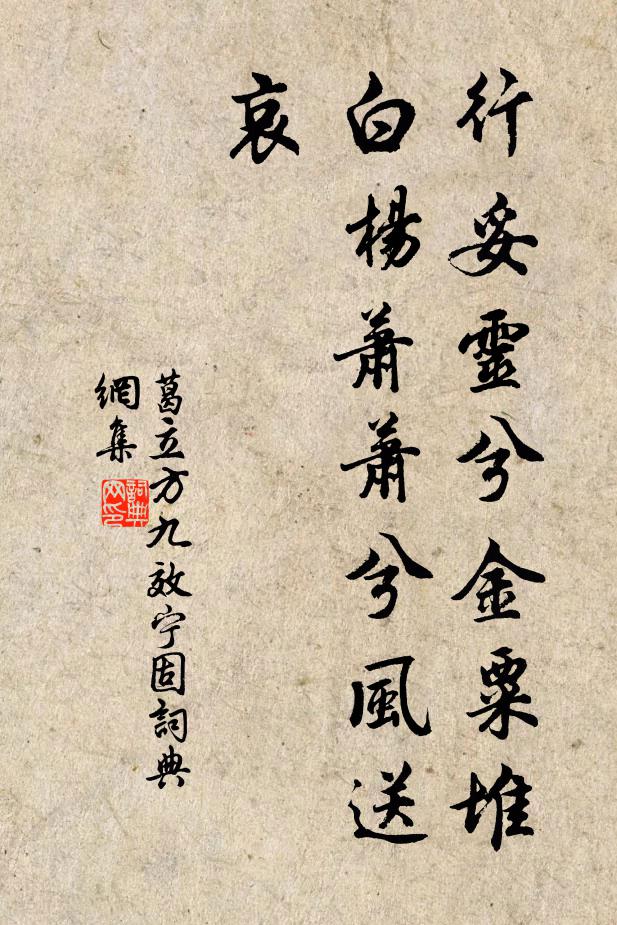 行妥靈兮金粟堆
白楊蕭蕭兮風送
哀
葛立方九效宁固詞典
網集
詞典
网印